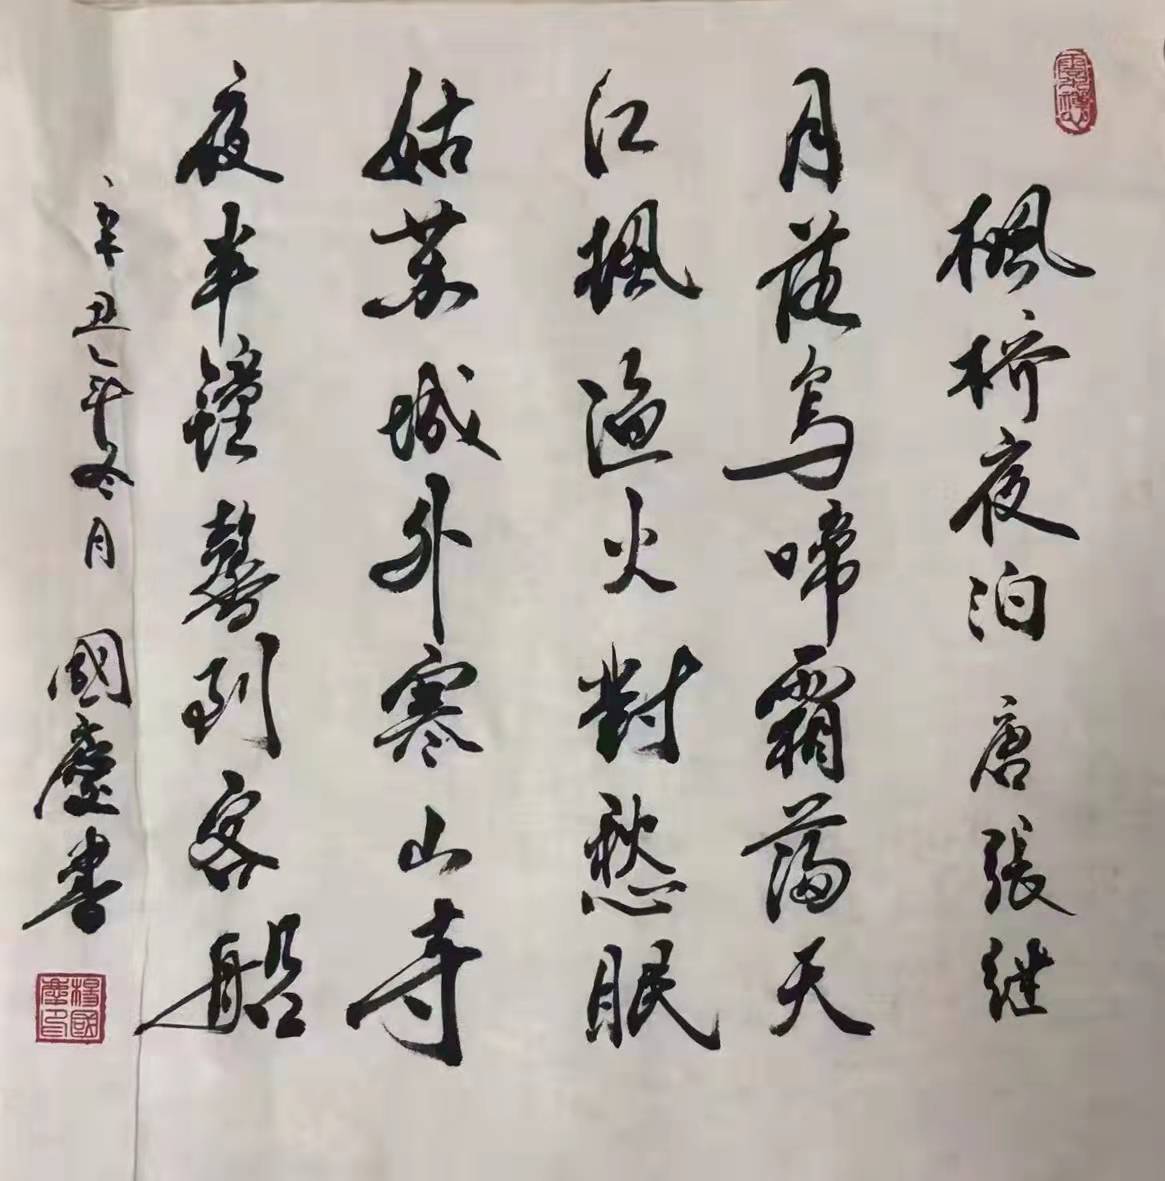 楓桥夜泊 唐 張继
月落烏啼霜滿天
江楓漁火對愁眠
姑苏城外寒山寺
夜半鐘聲到客船
辛丑年冬月 國慶書
楊國慶印